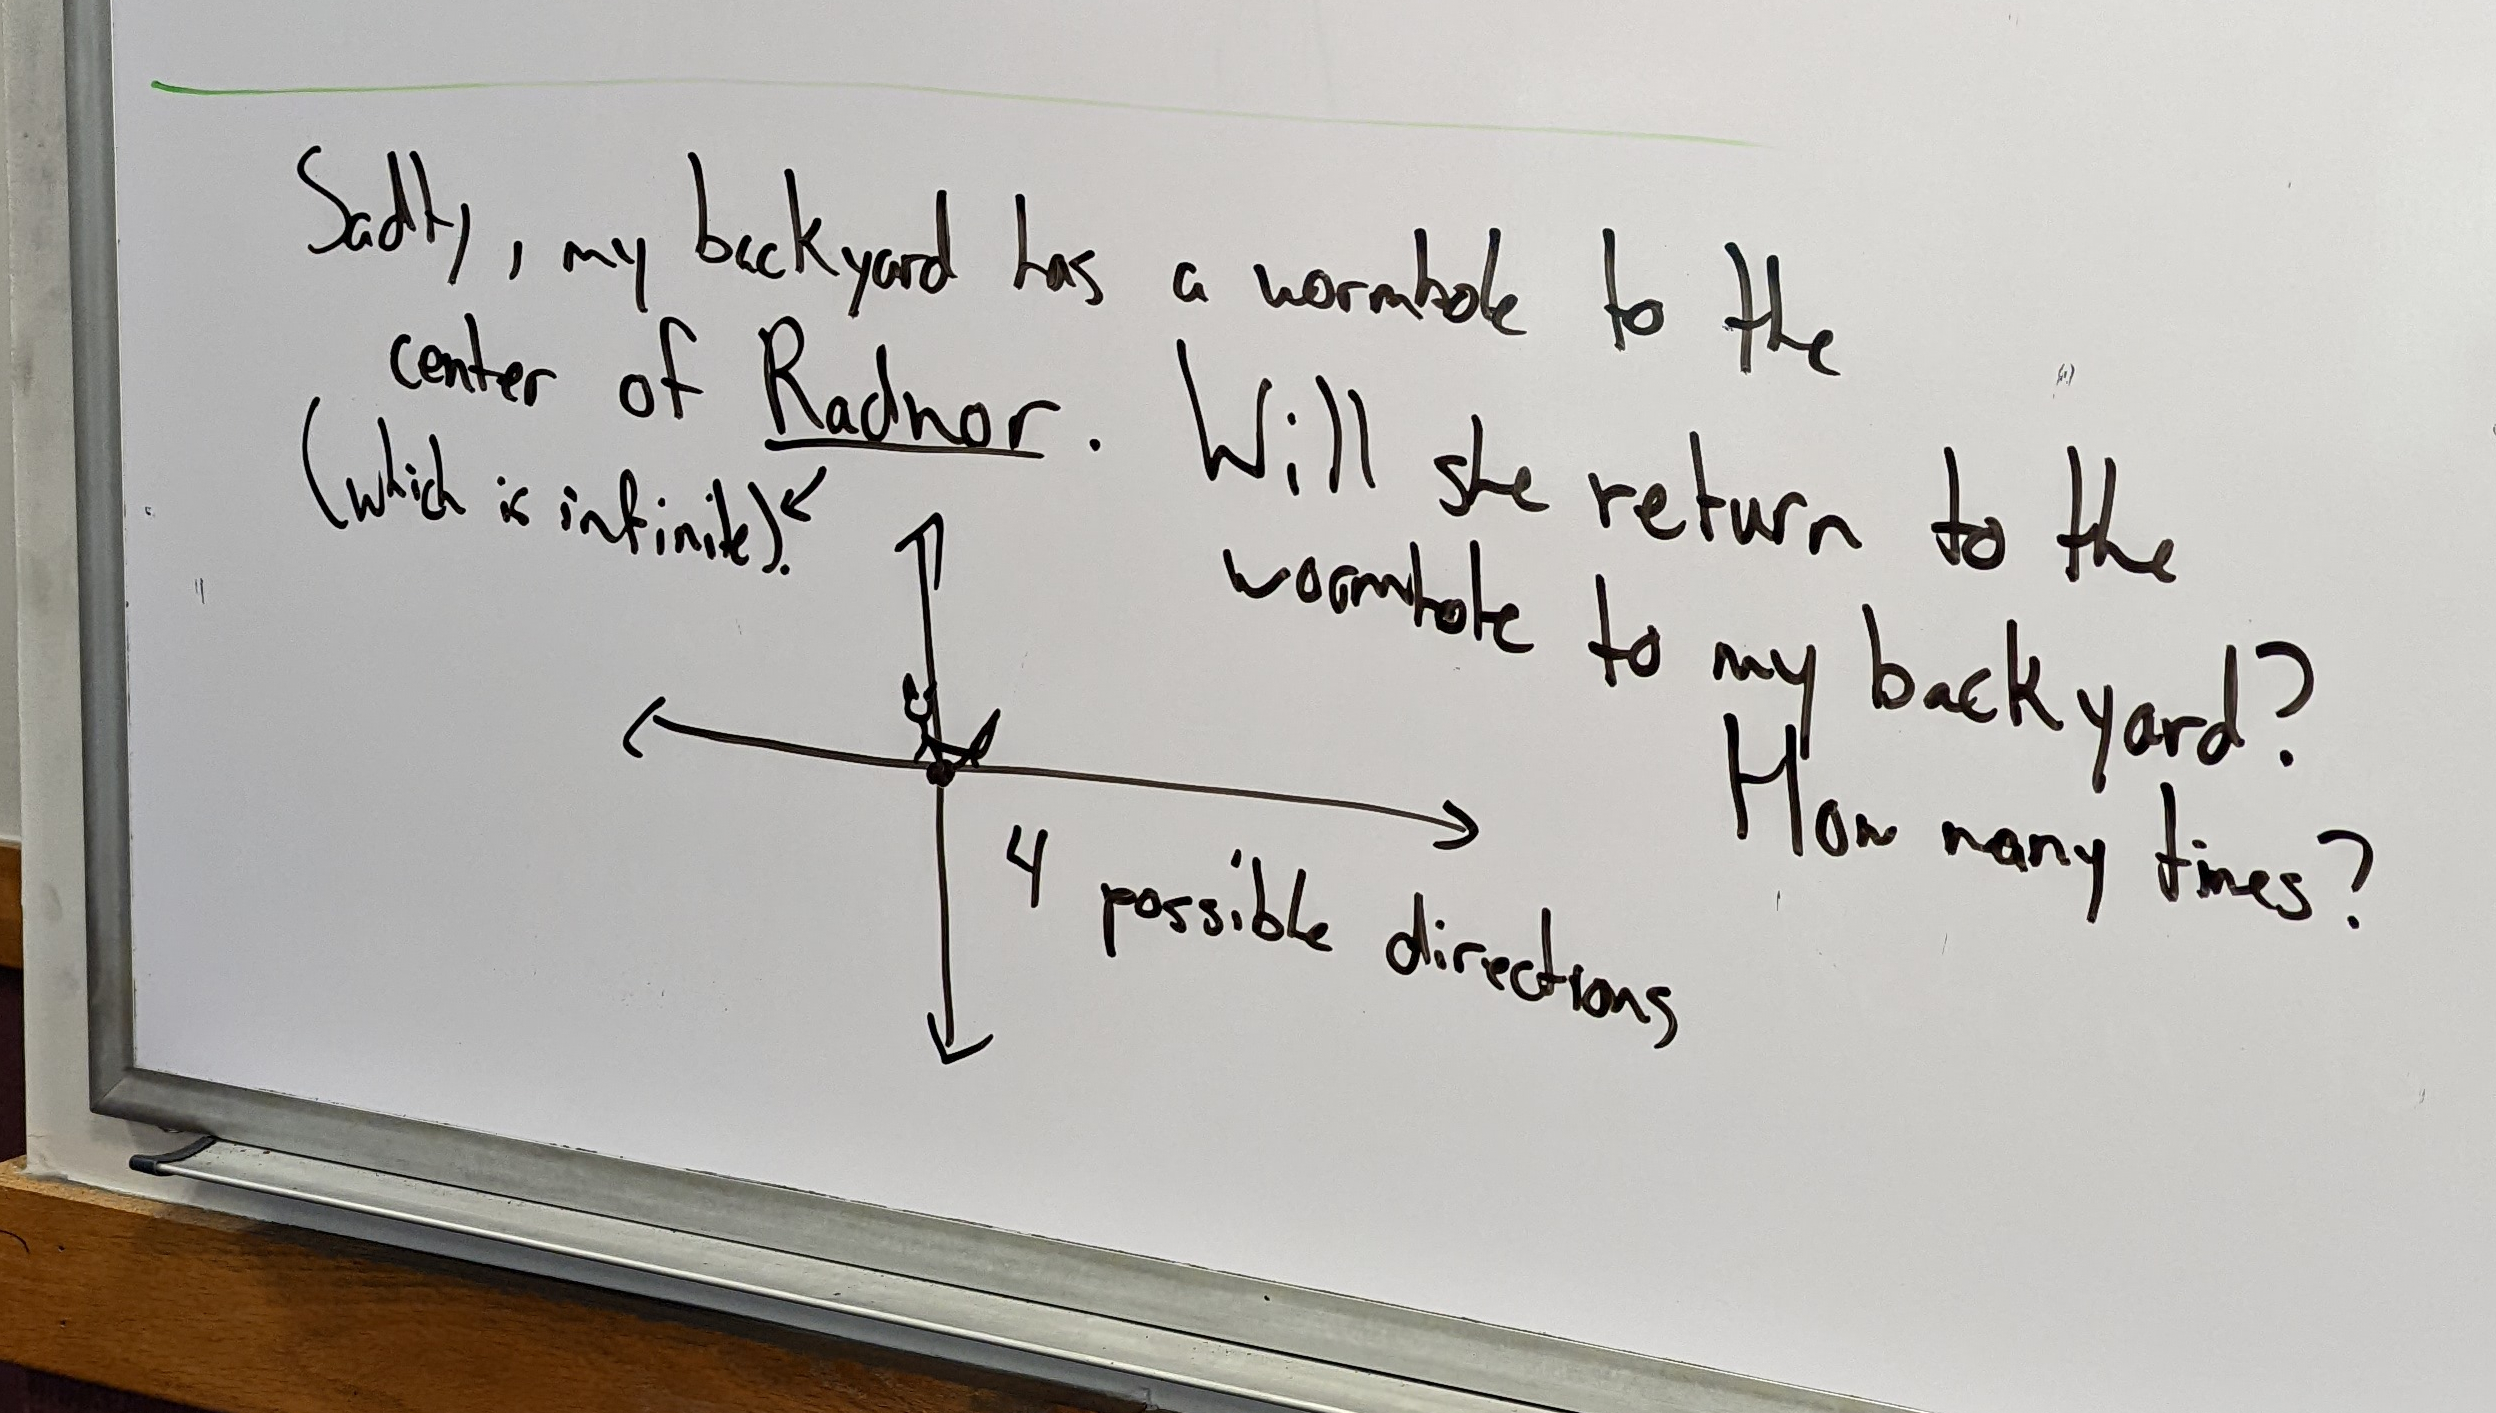 Sadly, my backyard has a wormhole to the
center of Radnor.
(which is infinite).
Will she return to the
wormhole to my backyard?
How many times?
4 possible directions